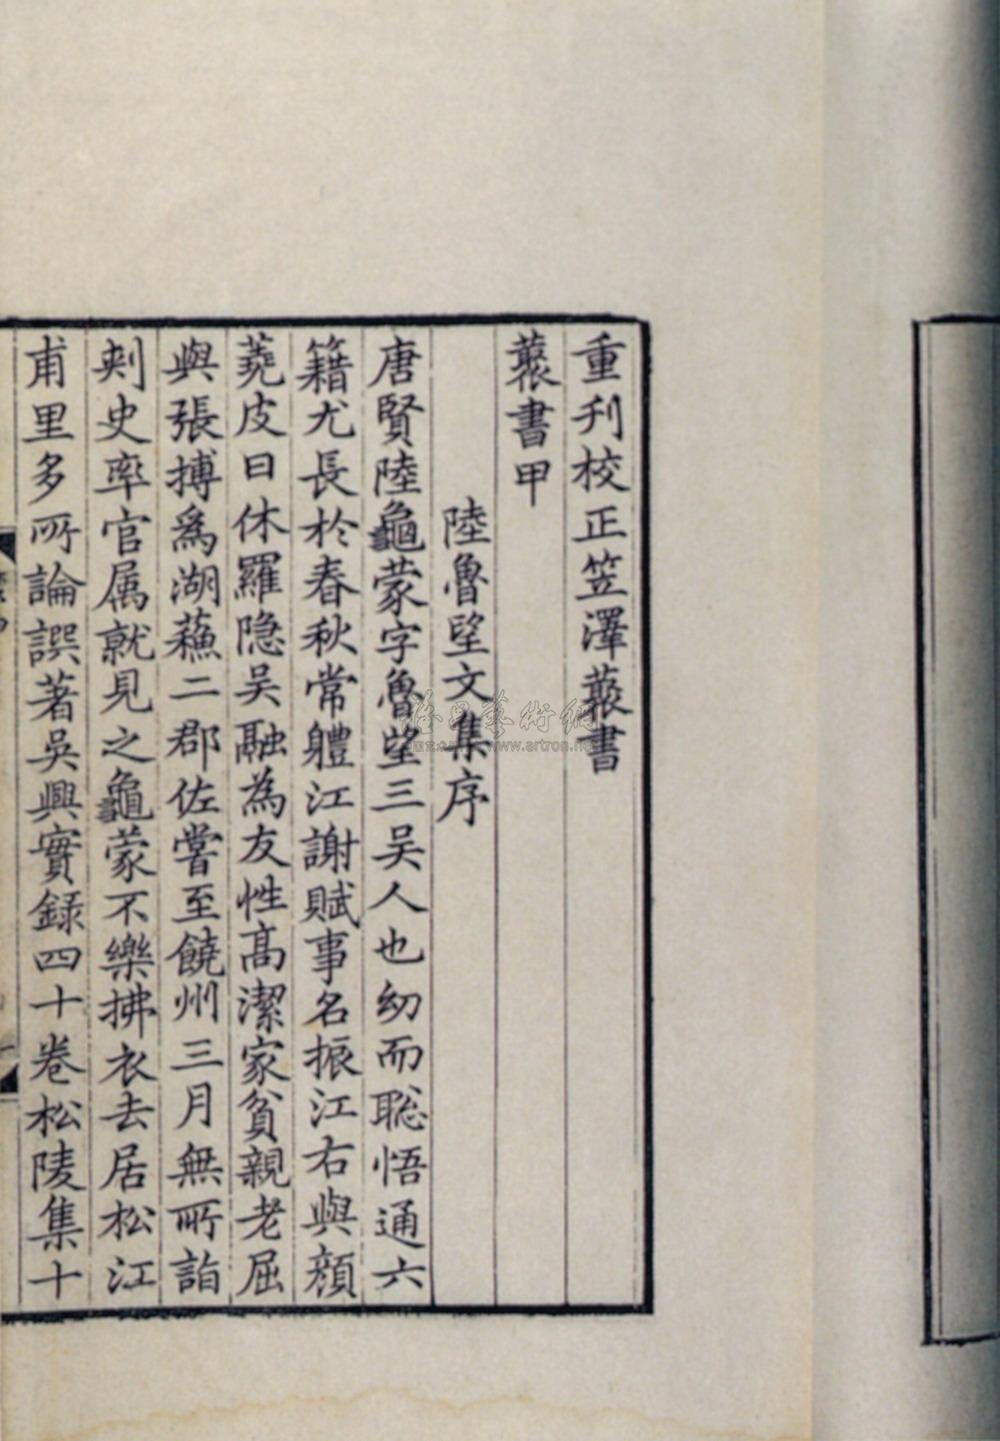 重刋校正笠澤藂書
藂書甲
陸魯望文集序
唐賢陸龜蒙字魯望三吴人也幼而聡悟通六
籍尤長於春秋常軆江謝賦事名振江右與顔
蕘皮日休羅隐吴融為友性髙潔家貧親老屈
與張搏爲湖蘓二郡佐嘗至饒州三月無所詣
刺史率官属就見之龜蒙不樂拂衣去居松江
甫里多所論譔著吳興實録四十卷松陵集十
www.artron.net